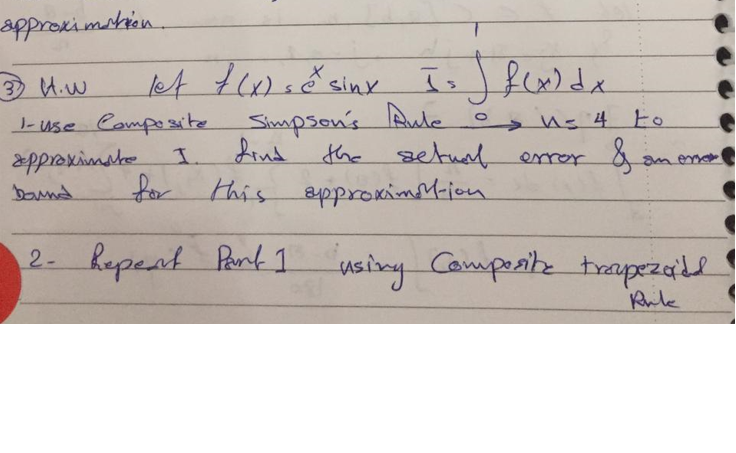 approximation.
③ H.W let f(x) = e^x sinx I = ∫₀¹ f(x) dx
1- use Composite Simpson's Rule → n = 4 to
approximate I. find the actual error & an error
bound for this approximation
2- Repeat Part 1 using Composite trapezoidal
Rule